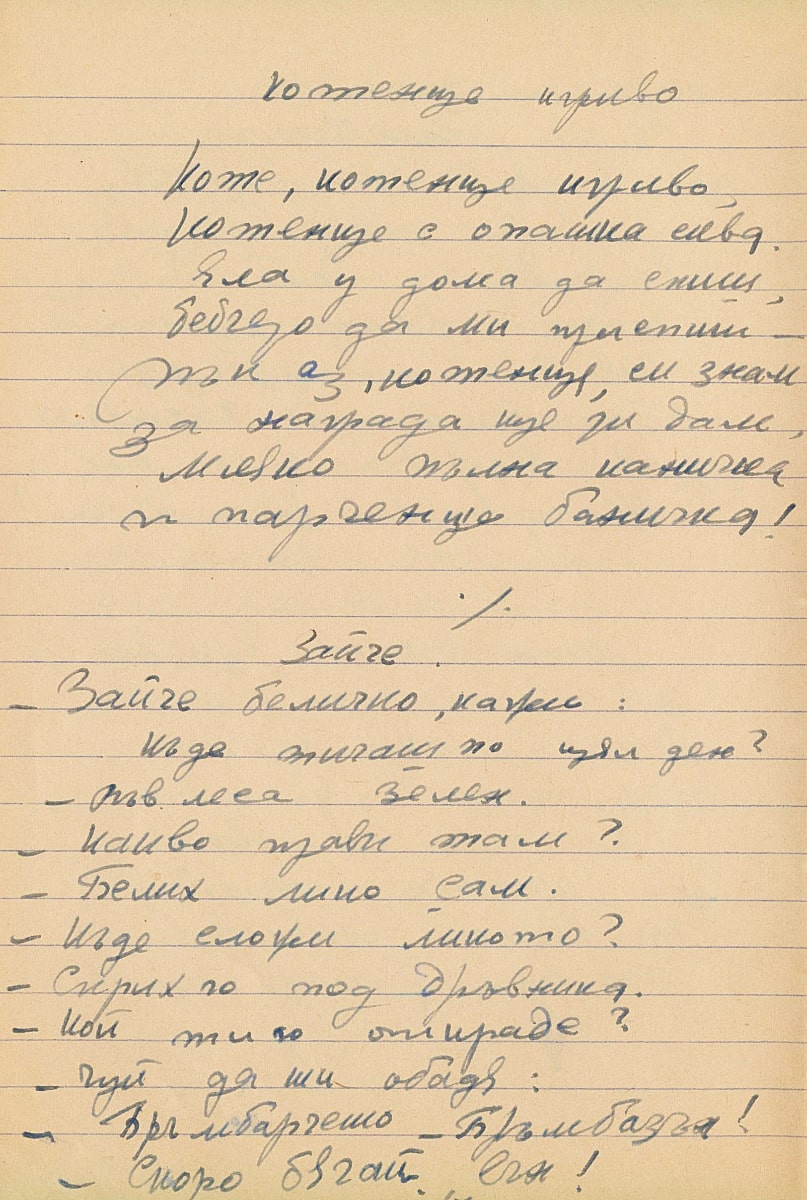 Котенце игриво
Коте, котенце игриво,
Котенце с опашка сива.
Ела у дома да спиш,
бебчезо да ми приспиш –
Пък аз, котенце, си знам
за награда ще ти дам,
Мляко пълна каничка
и парченце баничка!
./.
Зайче.
– Зайче беличко, кажи :
къде тичаш по цял ден?
– във леса зелен.
– Какво прави там?
– Белих лико сам.
– Къде сложи ликото?
– Скрих го под дръвника.
– Кой ти го откраде?
– Чуй да ти обадя :
– Бръмбарчето – Бръмбазъка!
– Скоро бягай,